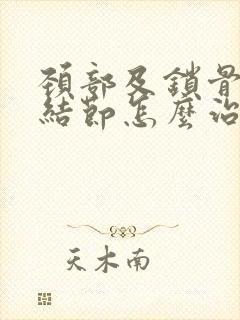 頸部及鎖骨
結節怎麼治
天木南